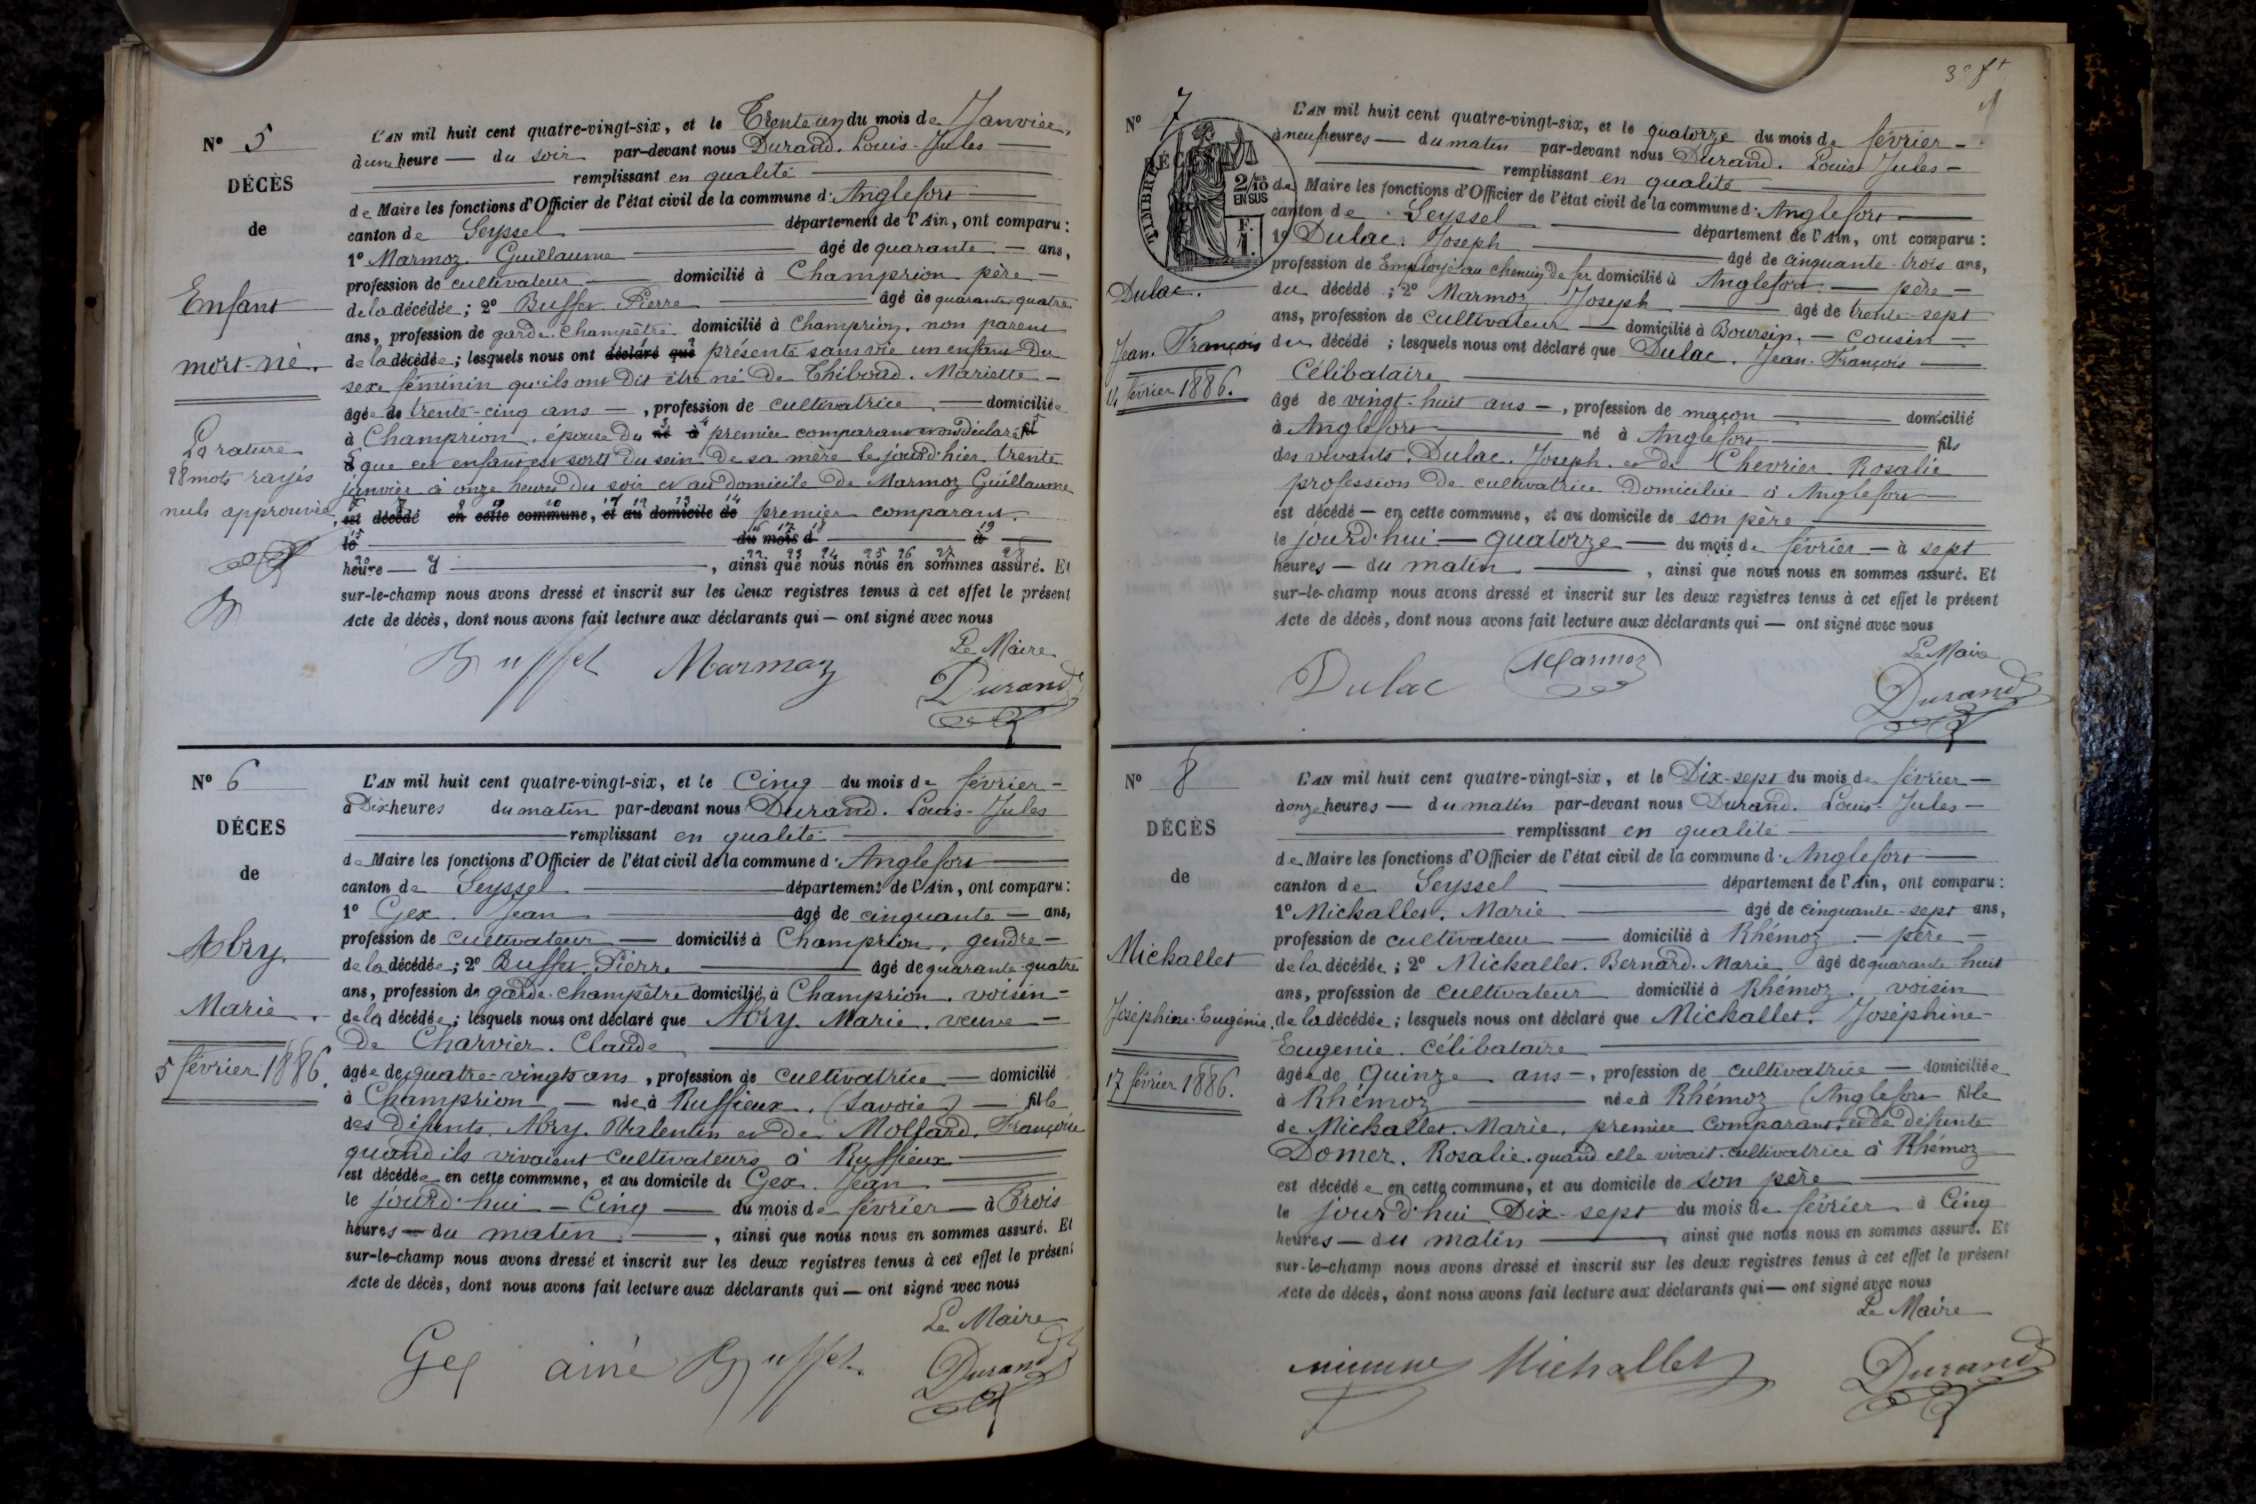 Nº 5
DÉCÈS
de
Enfant
mort-né.
La rature
28 mots rayés
nuls approuvée
L'AN mil huit cent quatre-vingt-six, et le Trente un du mois de Janvier,
à une heure — du soir par-devant nous Durand. Louis-Jules —
remplissant en qualité
de Maire les fonctions d'Officier de l'état civil de la commune d' Anglefort
canton de Seyssel département de l'Ain, ont comparu :
1º Marmoz. Guillaume âgé de quarante — ans,
profession de cultivateur domicilié à Champrion père —
de la décédée ; 2º Buffet Pierre âgé de quarante quatre
ans, profession de garde-champêtre domicilié à Champrion. non parent
de la décédée ; lesquels nous ont déclaré que présenté sans vie un enfant du
sexe féminin qu'ils ont dit être né de Thiboud. Mariette —
âgée de trente-cinq ans —, profession de cultivatrice — domiciliée
à Champrion. épouse du né à premier comparant et ont déclaré fil
à que cet enfant est sorti du sein de sa mère le jourd'hier trente
janvier à onze heures du soir et au domicile de Marmoz Guillaume
est décédé en cette commune, et au domicile de premier comparant.
le du mois d à
heure — d , ainsi que nous nous en sommes assuré. Et
sur-le-champ nous avons dressé et inscrit sur les deux registres tenus à cet effet le présent
Acte de décès, dont nous avons fait lecture aux déclarants qui — ont signé avec nous
Le Maire
Buffet Marmoz Durand
Nº 6
DÉCES
de
Abry
Marie.
5 février 1886.
L'AN mil huit cent quatre-vingt-six, et le Cinq du mois de février —
à Dix heures du matin par-devant nous Durand. Louis-Jules
remplissant en qualité
de Maire les fonctions d'Officier de l'état civil de la commune d' Anglefort
canton de Seyssel département de l'Ain, ont comparu :
1º Gex. Jean âgé de cinquante — ans,
profession de cultivateur — domicilié à Champrion, gendre —
de la décédée ; 2º Buffet. Pierre âgé de quarante quatre
ans, profession de garde-champêtre domicilié à Champrion. voisin —
de la décédée ; lesquels nous ont déclaré que Abry. Marie. veuve —
de Charvier. Claude
âgée de quatre-vingts ans, profession de cultivatrice — domicilié
à Champrion — née à Ruffieux. (Savoie) — fille
des défunts. Abry. Valentin et de Mollard. Françoise
quand ils vivaient cultivateurs à Ruffieux
est décédée en cette commune, et au domicile de Gex. Jean
le jourd'hui — Cinq — du mois de février — à Trois
heures — du matin , ainsi que nous nous en sommes assuré. Et
sur-le-champ nous avons dressé et inscrit sur les deux registres tenus à cet effet le présent
Acte de décès, dont nous avons fait lecture aux déclarants qui — ont signé avec nous
Le Maire
Gex ainé Buffet Durand
3e ft
Nº 7
TIMBRE
2/10 EN SUS
F. 1.
Dulac.
Jean. François
14 février 1886.
L'AN mil huit cent quatre-vingt-six, et le quatorze du mois de février —
à neuf heures — du matin par-devant nous Durand. Louis Jules —
remplissant en qualité
de Maire les fonctions d'Officier de l'état civil de la commune d' Anglefort
canton de Seyssel département de l'Ain, ont comparu :
1º Dulac. Joseph âgé de cinquante-trois ans,
profession de Employé au chemin de fer domicilié à Anglefort — père —
du décédé ; 2º Marmoz. Joseph âgé de trente-sept
ans, profession de cultivateur — domicilié à Boursin. — cousin —
du décédé ; lesquels nous ont déclaré que Dulac. Jean-François
Célibataire
âgé de vingt-huit ans —, profession de maçon domicilié
à Anglefort né à Anglefort fils
des vivants. Dulac. Joseph. et de Chevrier Rosalie
profession de cultivatrice domiciliée à Anglefort
est décédé — en cette commune, et au domicile de son père
le jourd'hui — quatorze — du mois de février — à sept
heures — du matin , ainsi que nous nous en sommes assuré. Et
sur-le-champ nous avons dressé et inscrit sur les deux registres tenus à cet effet le présent
Acte de décès, dont nous avons fait lecture aux déclarants qui — ont signé avec nous
Le Maire
Dulac Marmoz Durand
Nº 8
DÉCÈS
de
Michallet
Joséphine-Eugénie.
17 février 1886.
L'AN mil huit cent quatre-vingt-six, et le Dix-sept du mois de février —
à onze heures — du matin par-devant nous Durand. Louis-Jules —
remplissant en qualité
de Maire les fonctions d'Officier de l'état civil de la commune d' Anglefort
canton de Seyssel département de l'Ain, ont comparu :
1º Michallet. Marie âgé de cinquante-sept ans,
profession de cultivateur — domicilié à Rhémoz — père —
de la décédée ; 2º Michallet. Bernard. Marie âgé de quarante-huit
ans, profession de cultivateur domicilié à Rhémoz. voisin
de la décédée ; lesquels nous ont déclaré que Michallet. Joséphine —
Eugenie. célibataire
âgée de Quinze ans —, profession de cultivatrice — domiciliée
à Rhémoz née à Rhémoz (Anglefort fille
de Michallet. Marie. premier comparant. et de défunte
Domer. Rosalie. quand elle vivait. cultivatrice à Rhémoz
est décédée en cette commune, et au domicile de son père
le jourd'hui Dix-sept du mois de février à Cinq
heures — du matin , ainsi que nous nous en sommes assuré. Et
sur-le-champ nous avons dressé et inscrit sur les deux registres tenus à cet effet le présent
Acte de décès, dont nous avons fait lecture aux déclarants qui — ont signé avec nous
Le Maire
Michallet Durand